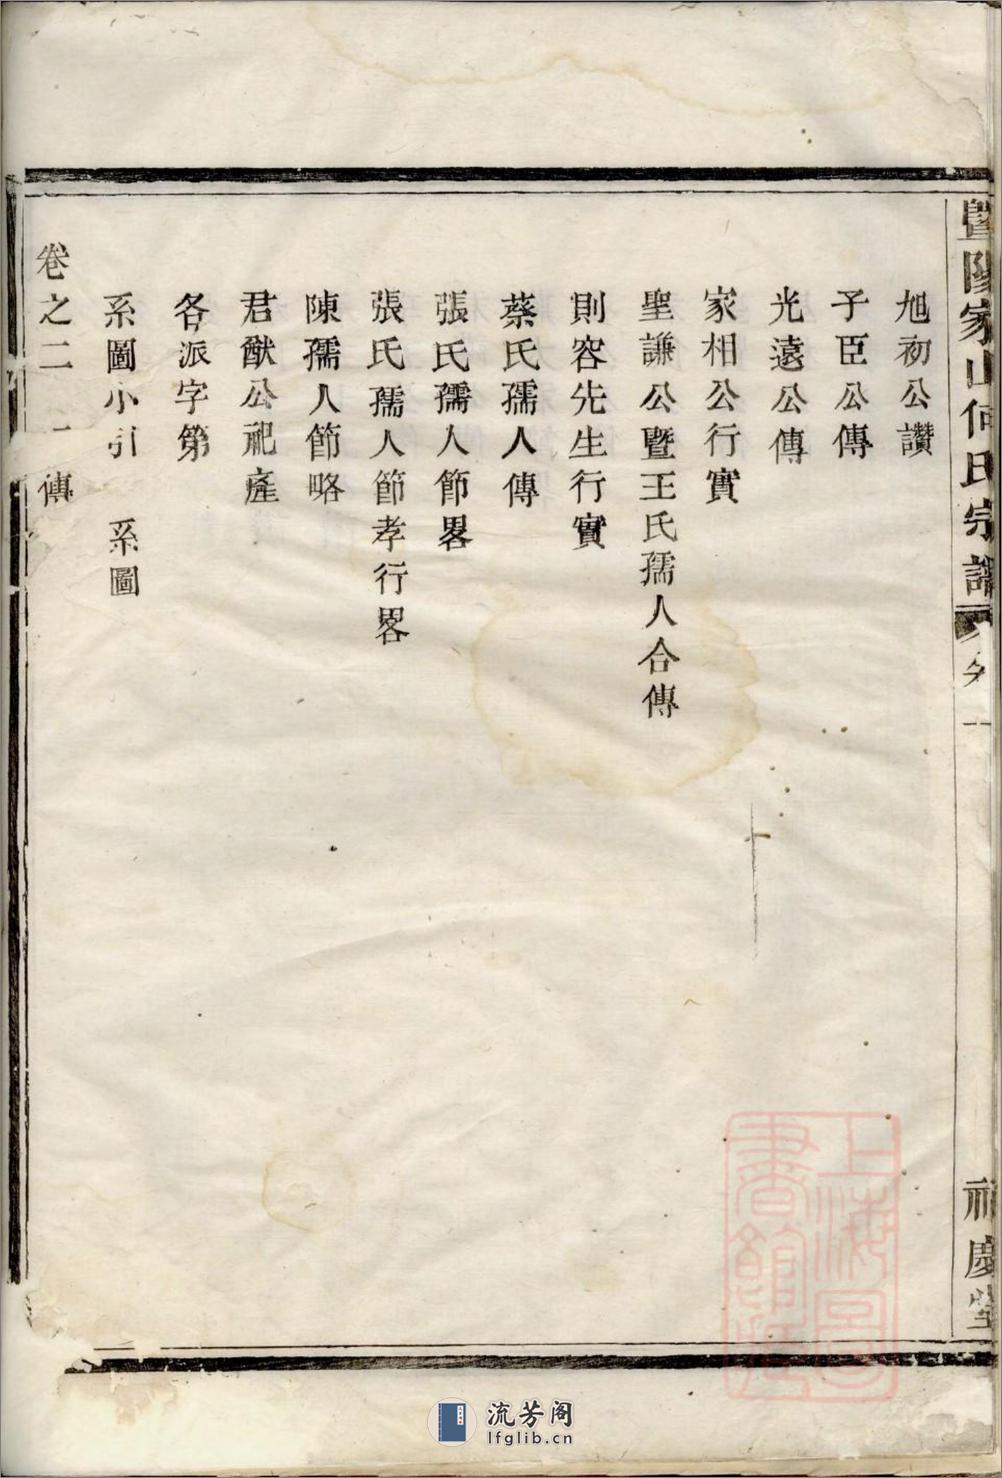 暨陽家山何氏宗譜
旭初公讚
子臣公傳
光遠公傳
家相公行實
聖謙公暨王氏孺人合傳
則容先生行實
蔡氏孺人傳
張氏孺人節畧
張氏孺人節孝行畧
陳孺人節略
君猷公祀產
各派字第
系圖小引 系圖
卷之二 傳
慶堂
上海圖書館藏
流芳阁
lfglib.cn